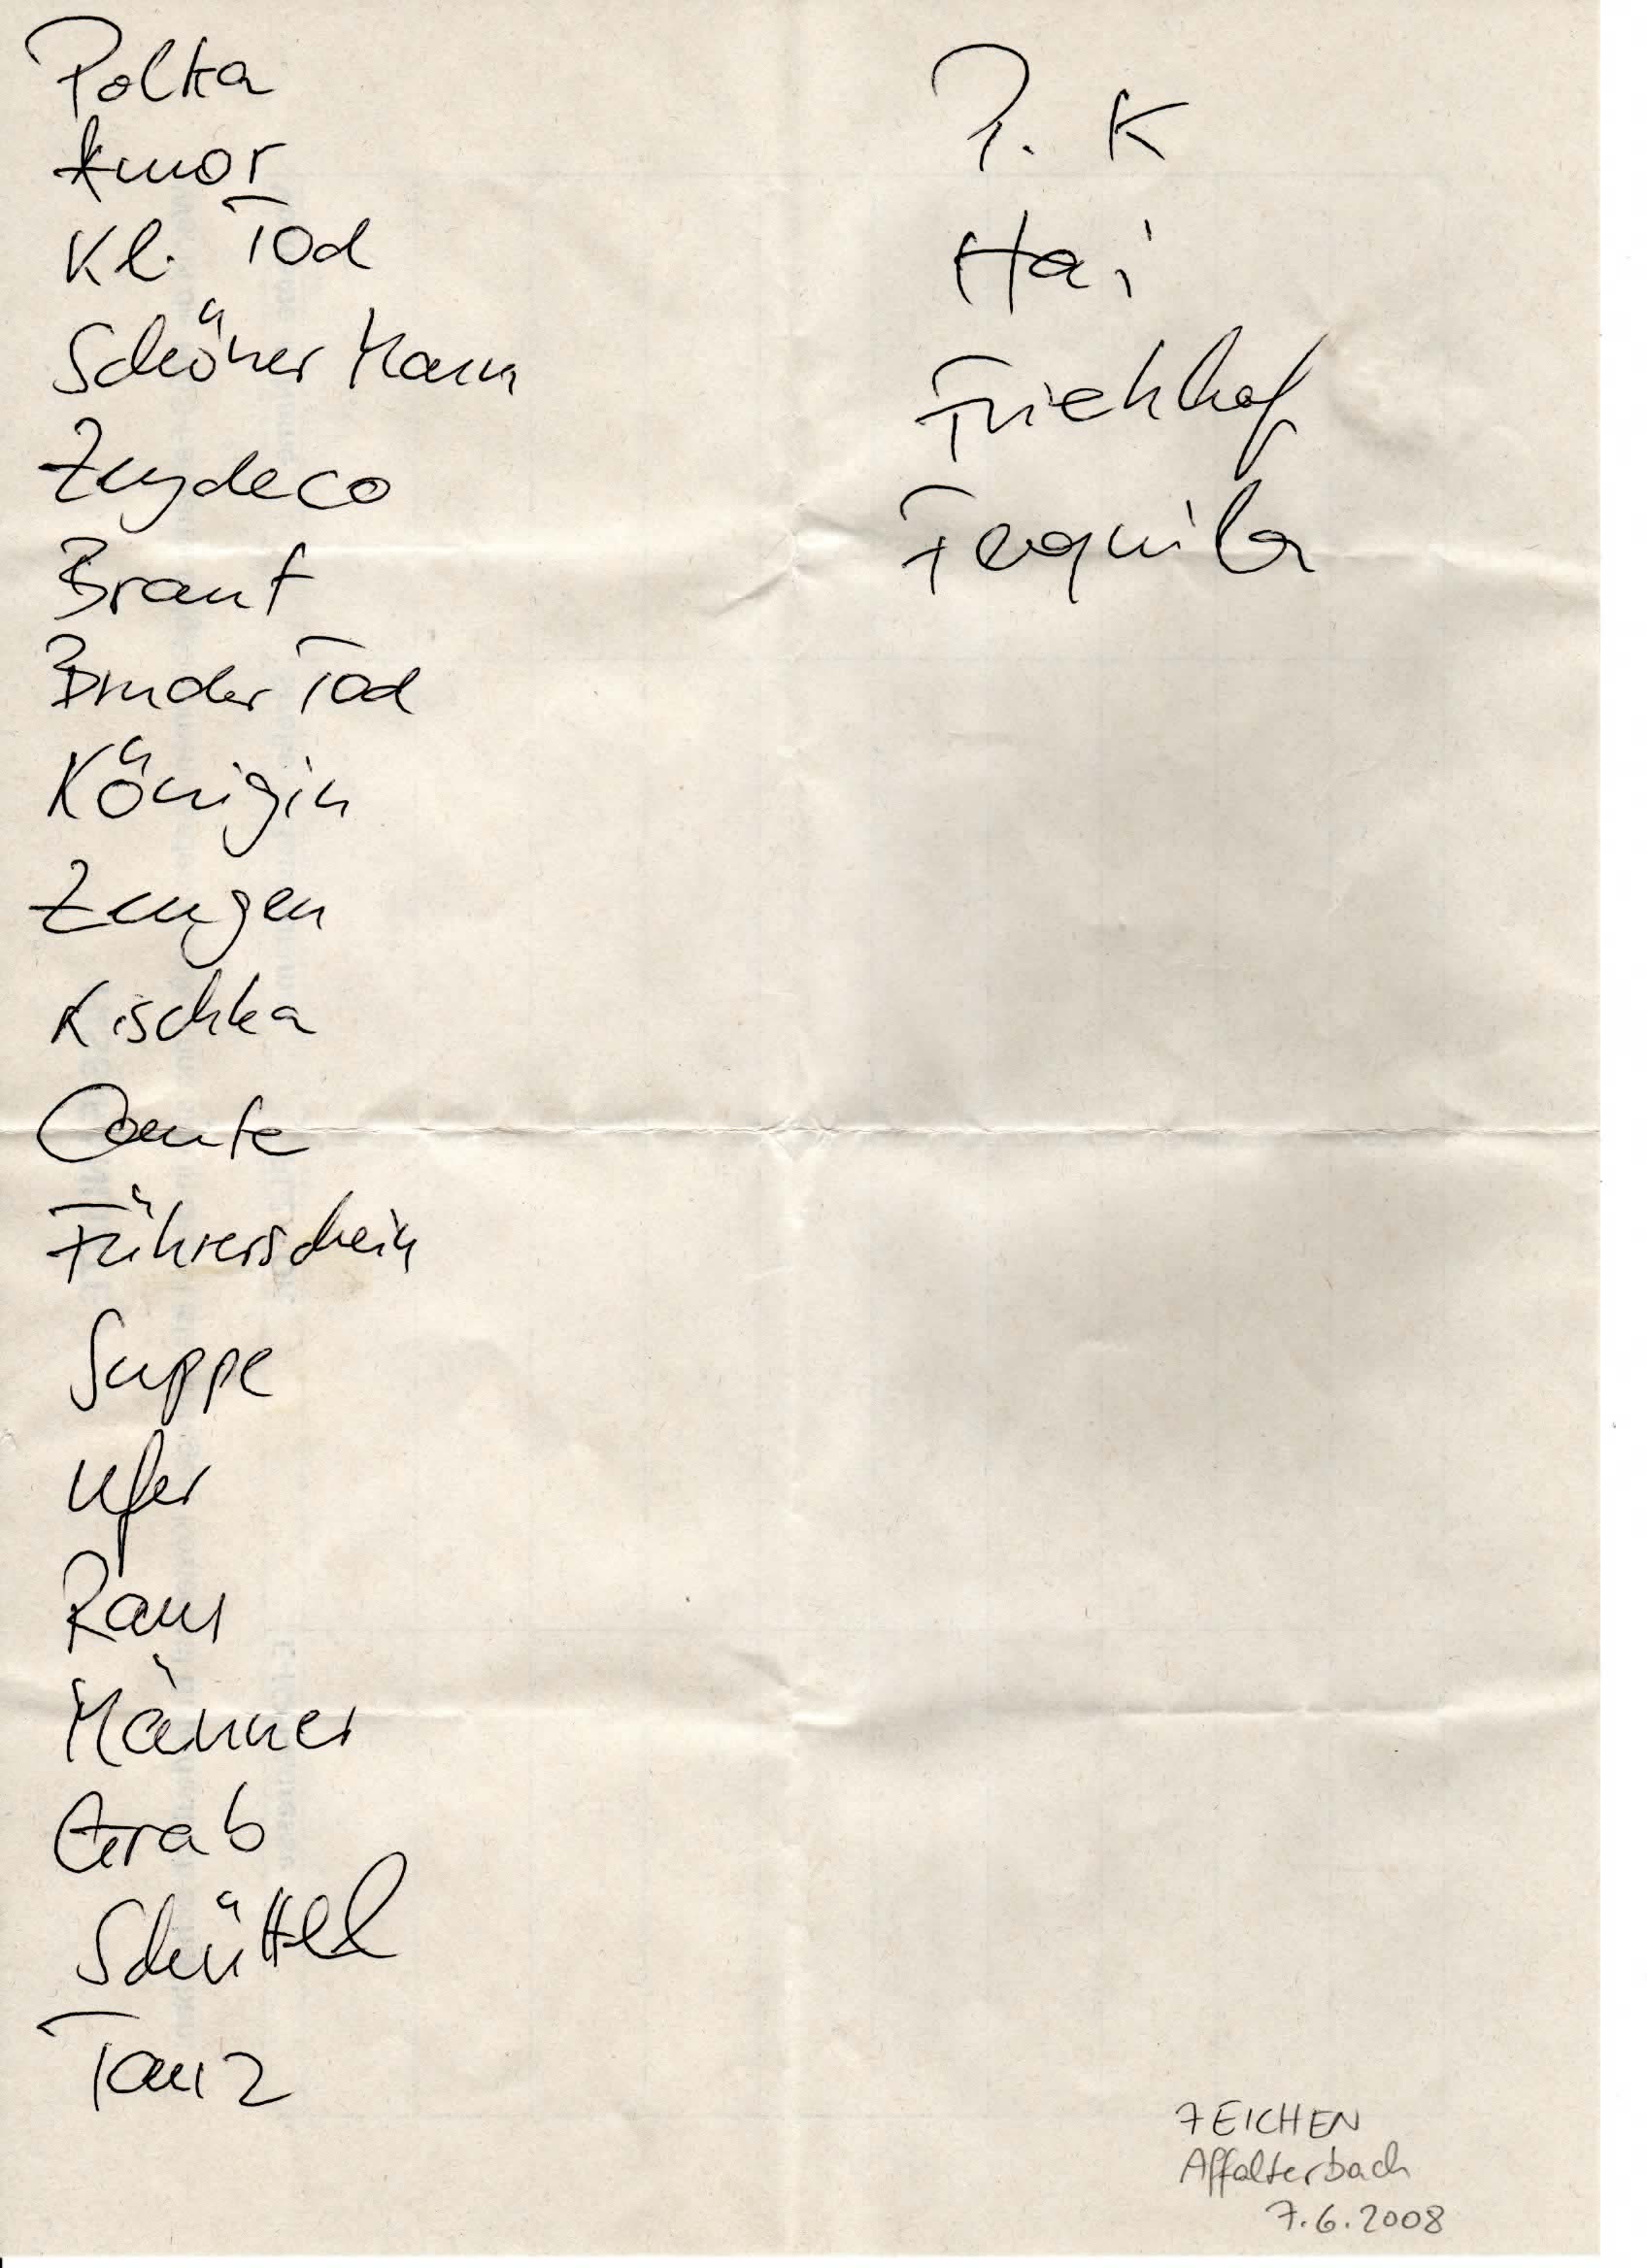 Polka
Amor
Kl. Tod
Schöner Mann
Zydeco
Braut
Bruder Tod
Königin
Zeugen
Kischka
Conte
Führerschein
Suppe
Ufer
Raus
Männer
Grab
Schüttel
Tanz
P. K
Hai
Friedhof
Tequila
7 EICHEN
Affalterbach
7.6.2008